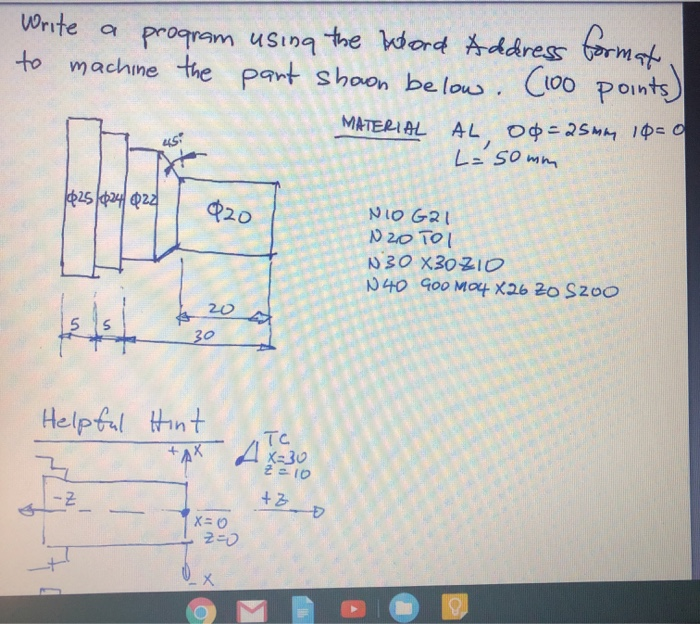 Write a program using the Word Address format
to machine the part shown below. (100 points)
MATERIAL AL, OΦ=25mm, IΦ=0
L= 50mm
45°
Φ25 Φ24 Φ22
Φ20
N10 G21
N20 T01
N30 X30 Z10
N40 G00 M04 X26 Z0 S200
20
5 5 30
Helpful Hint
+X
TC
X=30
Z=10
-Z
+Z
X=0
Z=0
-X